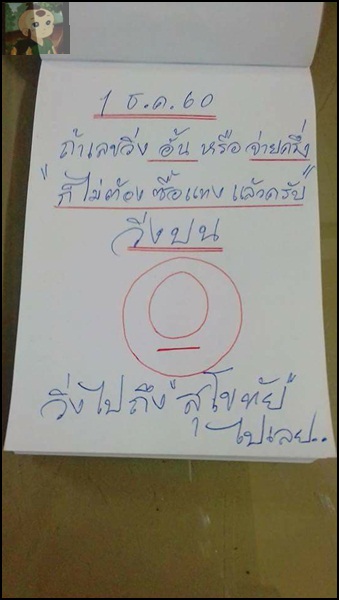 1 ธ.ค.60
ถ้าเลขวิ่ง อั้น หรือ จ่ายครึ่ง
"ก็ไม่ต้องซื้อแทงแล้วครับ"
วิ่งบน
0
วิ่งไปถึง "สุโขทัย"
ไปเลย..